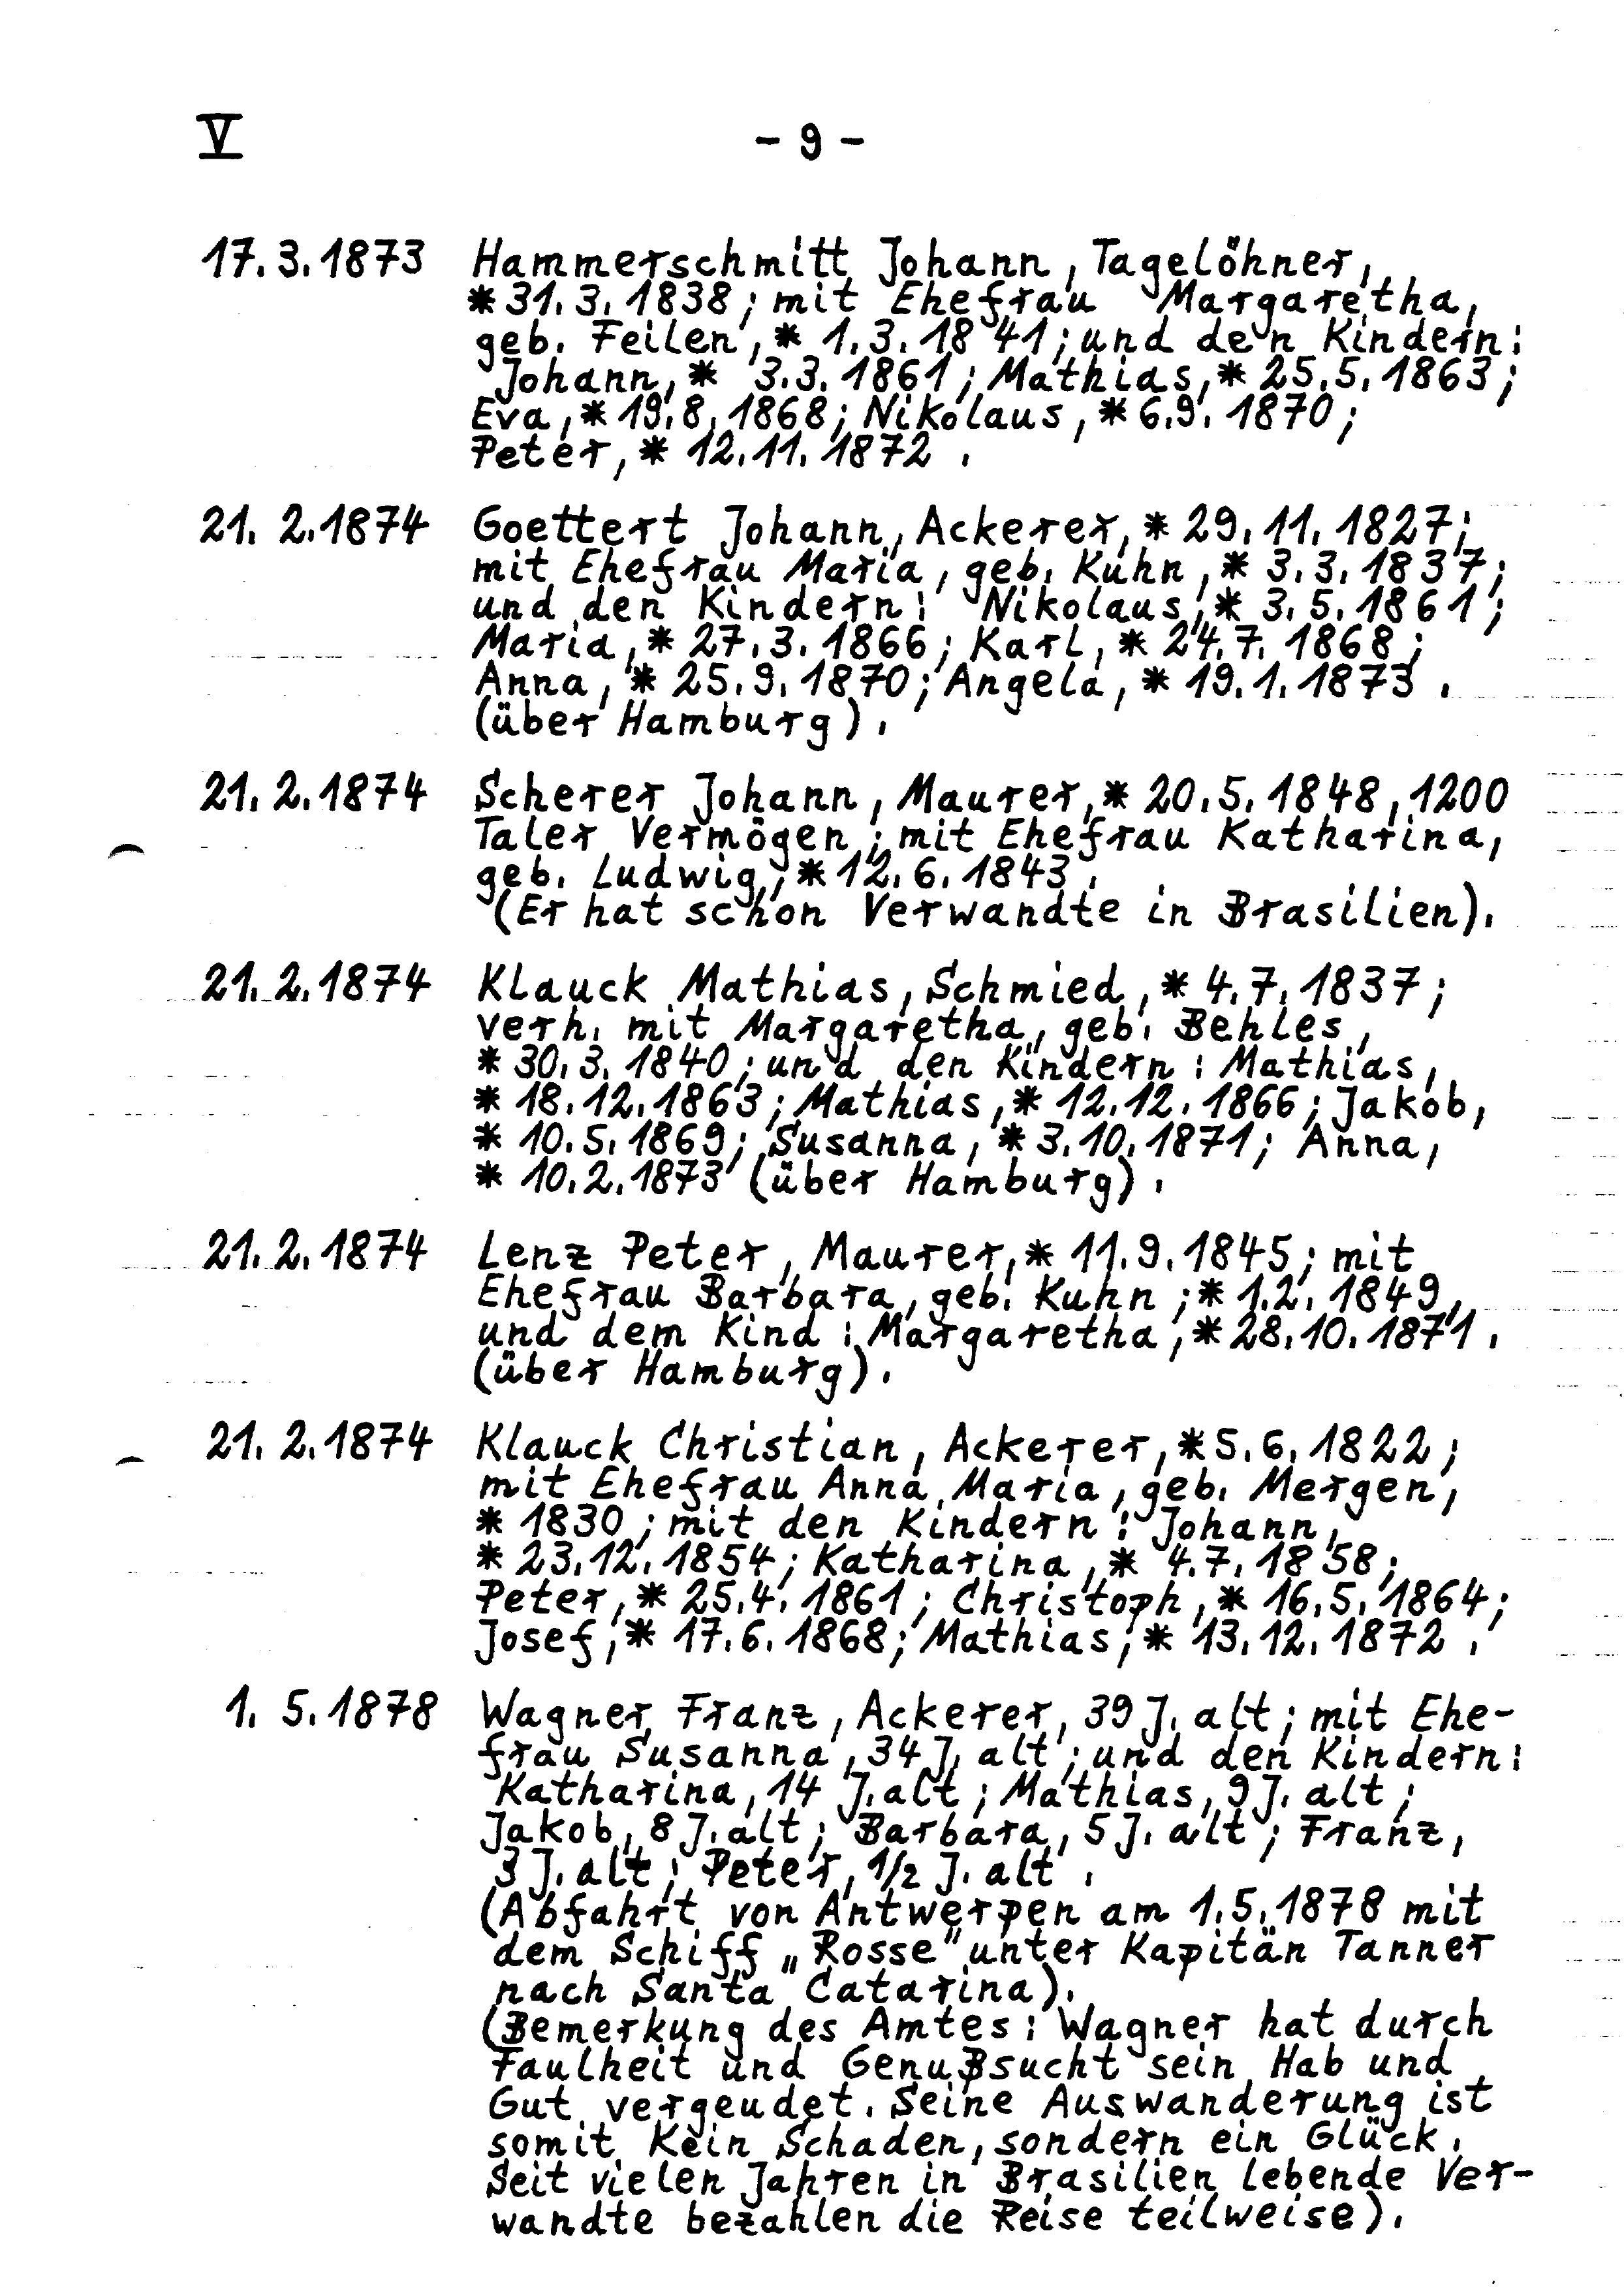 V - 9 -
17.3.1873 Hammerschmitt Johann, Tagelöhner,
* 31.3.1838; mit Ehefrau Margaretha,
geb. Feilen, * 1.3.1841; und den Kindern:
Johann, * 3.3.1861; Mathias, * 25.5.1863;
Eva, * 19.8.1868; Nikolaus, * 6.9.1870;
Peter, * 12.11.1872.
21.2.1874 Goettert Johann, Ackerer, * 29.11.1827;
mit Ehefrau Maria, geb. Kuhn, * 3.3.1837;
und den Kindern: Nikolaus, * 3.5.1861;
Maria, * 27.3.1866; Karl, * 24.7.1868;
Anna, * 25.9.1870; Angela, * 19.1.1873.
(über Hamburg).
21.2.1874 Scherer Johann, Maurer, * 20.5.1848, 1200
Taler Vermögen; mit Ehefrau Katharina,
geb. Ludwig, * 12.6.1843.
(Er hat schon Verwandte in Brasilien).
21.2.1874 Klauck Mathias, Schmied, * 4.7.1837;
verh. mit Margaretha, geb. Behles,
* 30.3.1840; und den Kindern: Mathias,
* 18.12.1863; Mathias, * 12.12.1866; Jakob,
* 10.5.1869; Susanna, * 3.10.1871; Anna,
* 10.2.1873 (über Hamburg).
21.2.1874 Lenz Peter, Maurer, * 11.9.1845; mit
Ehefrau Barbara, geb. Kuhn; * 1.2.1849,
und dem Kind: Margaretha, * 28.10.1871.
(über Hamburg).
21.2.1874 Klauck Christian, Ackerer, * 5.6.1822;
mit Ehefrau Anna Maria, geb. Mergen,
* 1830; mit den Kindern: Johann,
* 23.12.1854; Katharina, * 4.7.1858;
Peter, * 25.4.1861; Christoph, * 16.5.1864;
Josef, * 17.6.1868; Mathias, * 13.12.1872.
1.5.1878 Wagner Franz, Ackerer, 39 J. alt; mit Ehe-
frau Susanna, 34 J. alt; und den Kindern:
Katharina, 14 J. alt; Mathias, 9 J. alt;
Jakob, 8 J. alt; Barbara, 5 J. alt; Franz,
3 J. alt; Peter, 1/2 J. alt.
(Abfahrt von Antwerpen am 1.5.1878 mit
dem Schiff „Rosse" unter Kapitän Tanner
nach Santa Catarina).
(Bemerkung des Amtes: Wagner hat durch
Faulheit und Genußsucht sein Hab und
Gut vergeudet. Seine Auswanderung ist
somit kein Schaden, sondern ein Glück.
Seit vielen Jahren in Brasilien lebende Ver-
wandte bezahlen die Reise teilweise).